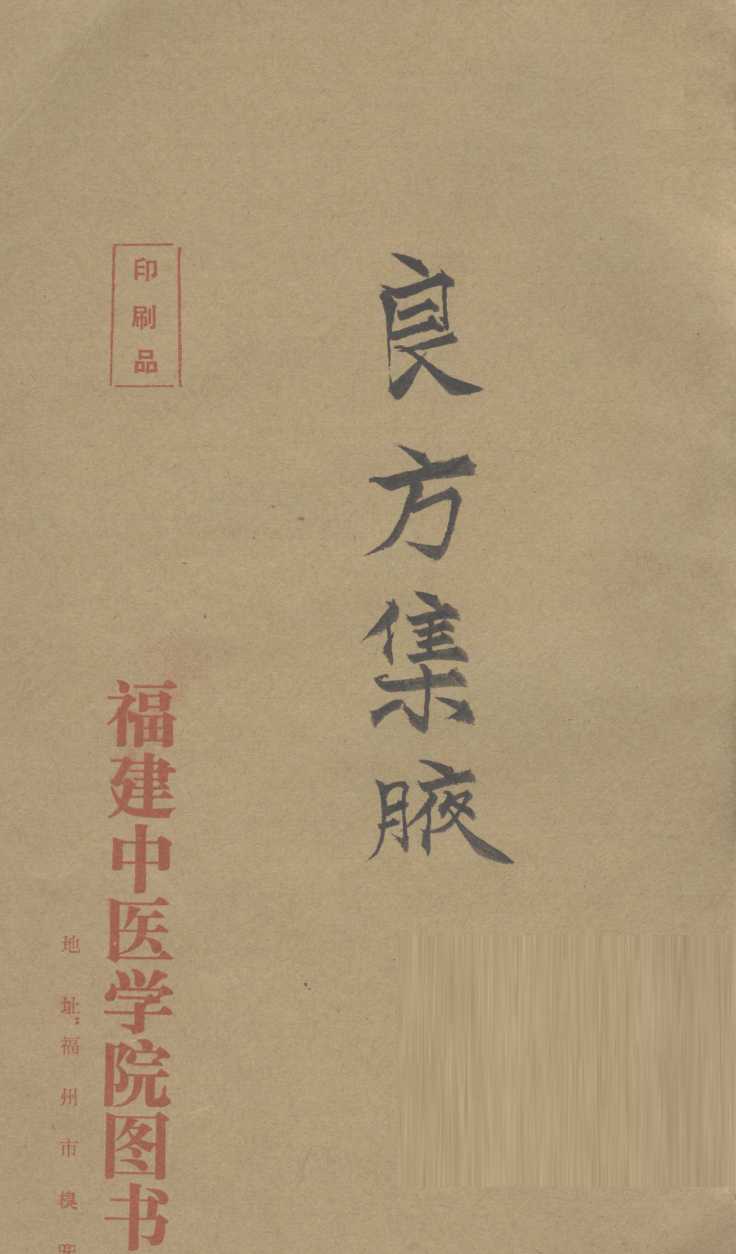 良方集腋
印刷品
福建中医学院图书
地址:福州市